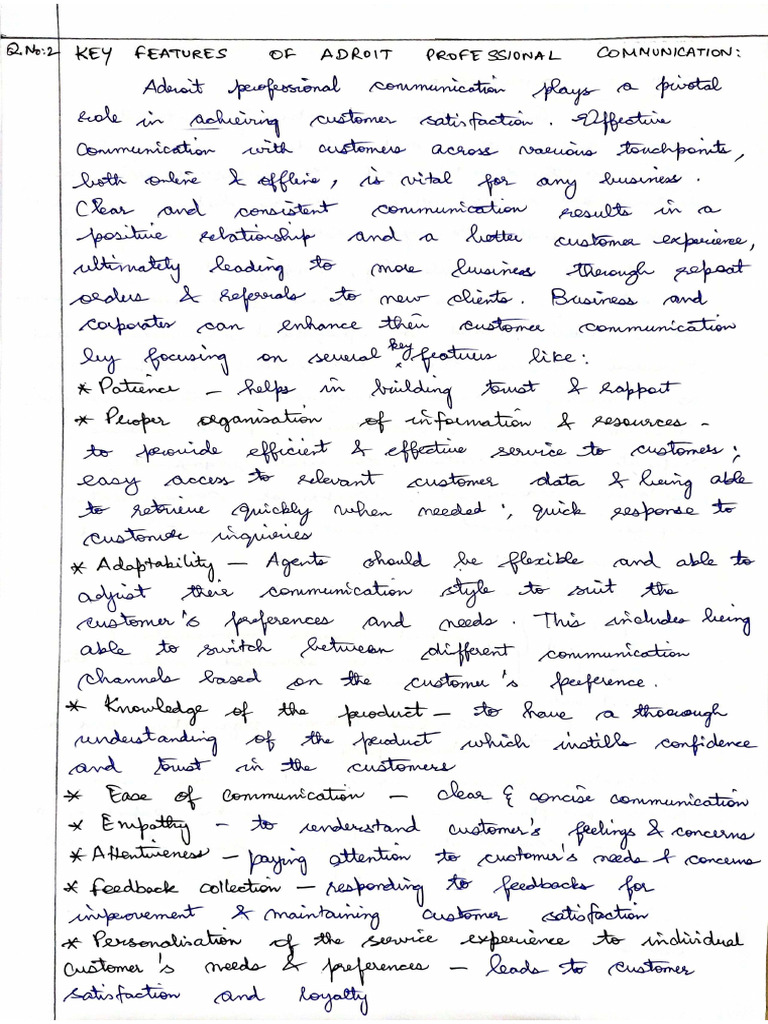 Q.No:2 KEY FEATURES OF ADROIT PROFESSIONAL COMMUNICATION:
Adroit professional communication plays a pivotal
role in achieving customer satisfaction. Effective
communication with customers across various touchpoints,
both online & offline, is vital for any business.
Clear and consistent communication results in a
positive relationship and a better customer experience,
ultimately leading to more business through repeat
orders & referrals to new clients. Business and
corporates can enhance their customer communication
by focusing on several key features like:
* Patience – helps in building trust & rapport
* Proper organisation of information & resources –
to provide efficient & effective service to customers;
easy access to relevant customer data & being able
to retrieve quickly when needed; quick response to
customer inquiries
* Adaptability – Agents should be flexible and able to
adjust their communication style to suit the
customer's preferences and needs. This includes being
able to switch between different communication
channels based on the customer's preference.
* Knowledge of the product – to have a thorough
understanding of the product which instills confidence
and trust in the customers
* Ease of communication – clear & concise communication
* Empathy – to understand customer's feelings & concerns
* Attentiveness – paying attention to customer's needs & concerns
* Feedback collection – responding to feedbacks for
improvement & maintaining customer satisfaction
* Personalisation of the service experience to individual
customer's needs & preferences – leads to customer
satisfaction and loyalty